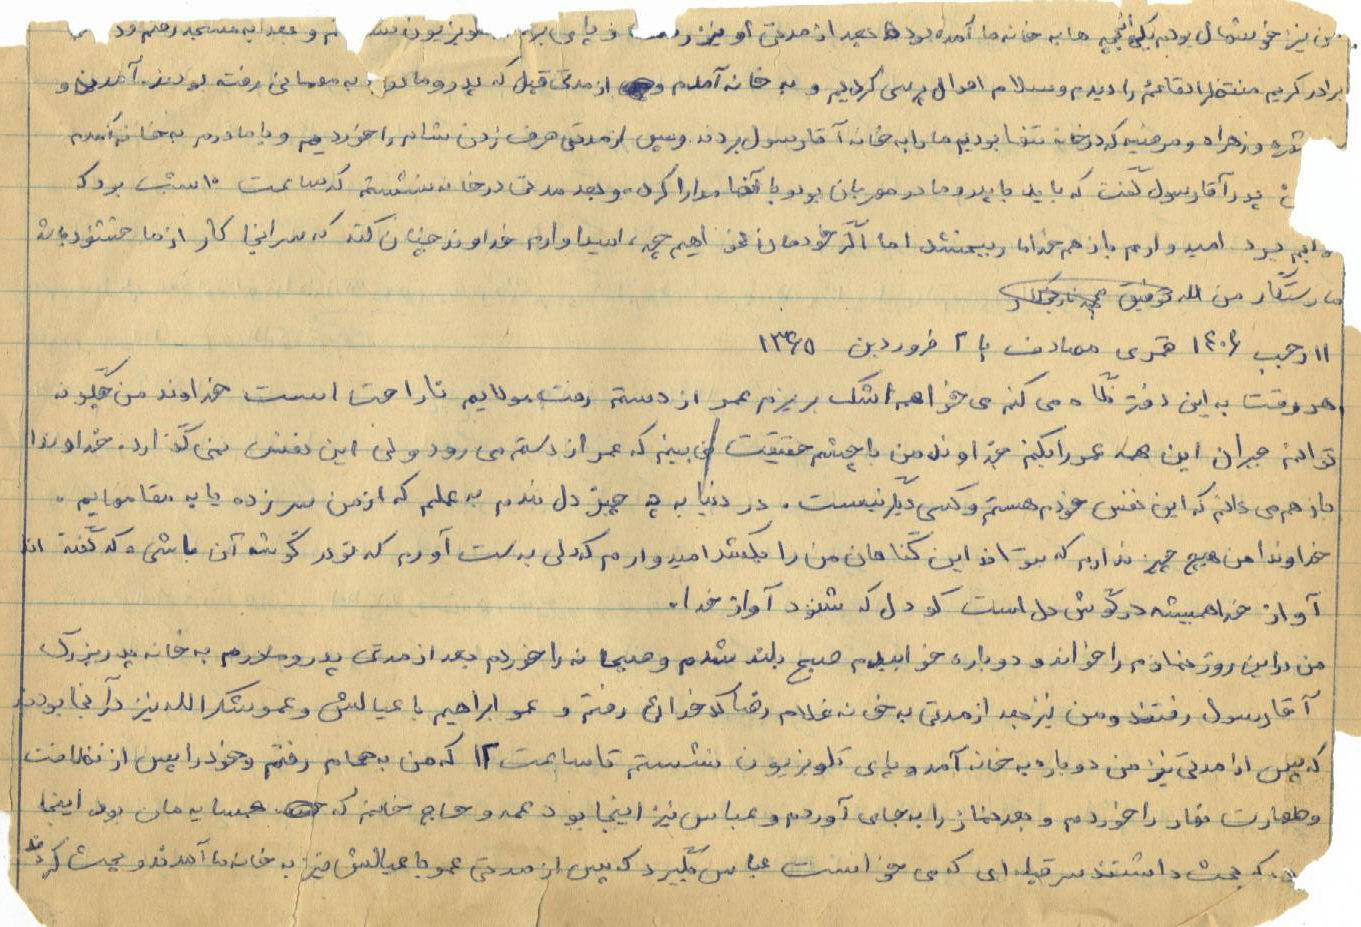 من نیز خوشحال بودم یکی از بچه ها به خانه ما آمده بود بعد از مدتی او نیز و پای تلویزیون و بعد به مسجد رفتم و
برادر کریم منتظر القائم را دیدم و سلام احوال پرسی کردیم و به خانه آمدم و از مدتی قبل که پدر و مادرم به مهمانی رفته بودند. آمدن و
و زهراه و مرضیه که در خانه تنها بودیم ما را به خانه آقا رسول بردند. و پس از مدتی حرف زدن شام را خوردیم و با مادرم به خانه آمدم
پدر آقا رسول گفت که باید با پدر و مادر مهربان بود و با آنها مدارا کرد. و بعد مدتی در خانه نشستم که ساعت ۱۰ شب بود که
امیدوارم باز هم خدا ما را ببخشد اما اگر خودمان نخواهیم چه، امیدوارم خداوند چنان کند که سرانجا کار از ما خشنود باشد
ما رستگار من الله توفیق
۱۱ رجب ۱۴۰۶ قمری مصادف با ۲ فروردین ۱۳۶۵
هر وقت به این دفتر نگاه می کنم می خواهم اشک بریزم عمر از دستم رفت مولایم ناراحت است خداوند من چگونه
توانم جبران این همه عمر را بکنم خداوند من با چشم حقیقت می بینم که عمر از دستم می رود ولی این نفس نمی گذارد. خداوندا
باز هم می دانم که این نفس خودم هستم و کسی دیگر نیست. در دنیا به چه چیز دل بندم به علم که از من سر زده یا به مقامهایم.
خداوندا من هیچ چیز ندارم که بتواند این گناهان من را بکشد امیدوارم که دلی بدست آورم که تو در گوشه آن باشی. که گفته اند
آواز خدا همیشه در گوش دل است کو دل که شنود آواز خدا.
من در این روز نمازم را خواند و دوباره خوابیدم صبح بلند شدم و صبحانه را خوردم بعد از مدتی پدر و مادرم به خانه پدربزرگ
آقا رسول رفتند و من نیز بعد از مدتی به خانه غلام رضا کدخدائی رفتم و عمو ابراهیم با عیالش و عمو شکرالله نیز در آنجا بودند
که پس از مدتی نیز من دوباره به خانه آمد و پای تلویزیون نشستم تا ساعت ۱۲ که من به حمام رفتم و خود را پس از نظافت
و طهارت نهار را خوردم و بعد نماز را به جای آوردم و عباس نیز اینجا بود عمه و حاج خانم که همسایه مان بود اینجا
که بحث داشتند سر قبله ای که می خواست عباس بگیرد که پس از مدتی عمو با عیالش نیز به خانه ما آمدند و بحث کردند